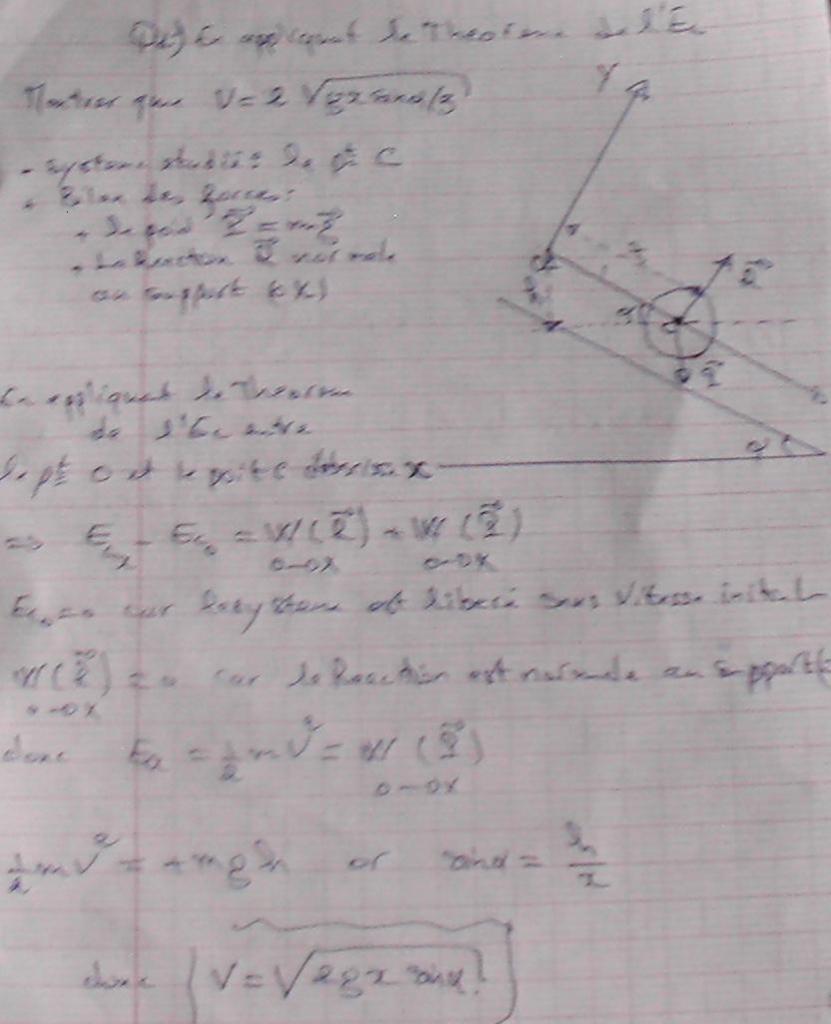 En appliquant le Theoreme de l'Ec
Montrer que V = 2 √(gx sinα/3)
- système studié : le pt C
- Bilan des forces :
+ le poid P = mg
+ La Reaction R normale
au support (x)
Y
R
P
α
En appliquant le Theorem
de l'Ec entre
le pt O et le point C x
=> Ecx - Eco = W(R) + W(P)
o→x o→x
Eco = o car le systeme est liberé sans Vitesse initial
W(R) = o car la Reaction est normale au support
o→x
donc Ecx = 1/2 mV² = W(P)
o→x
1/2 mV² = +mgh or sinα = h/x
donc V = √(2gx sinα)